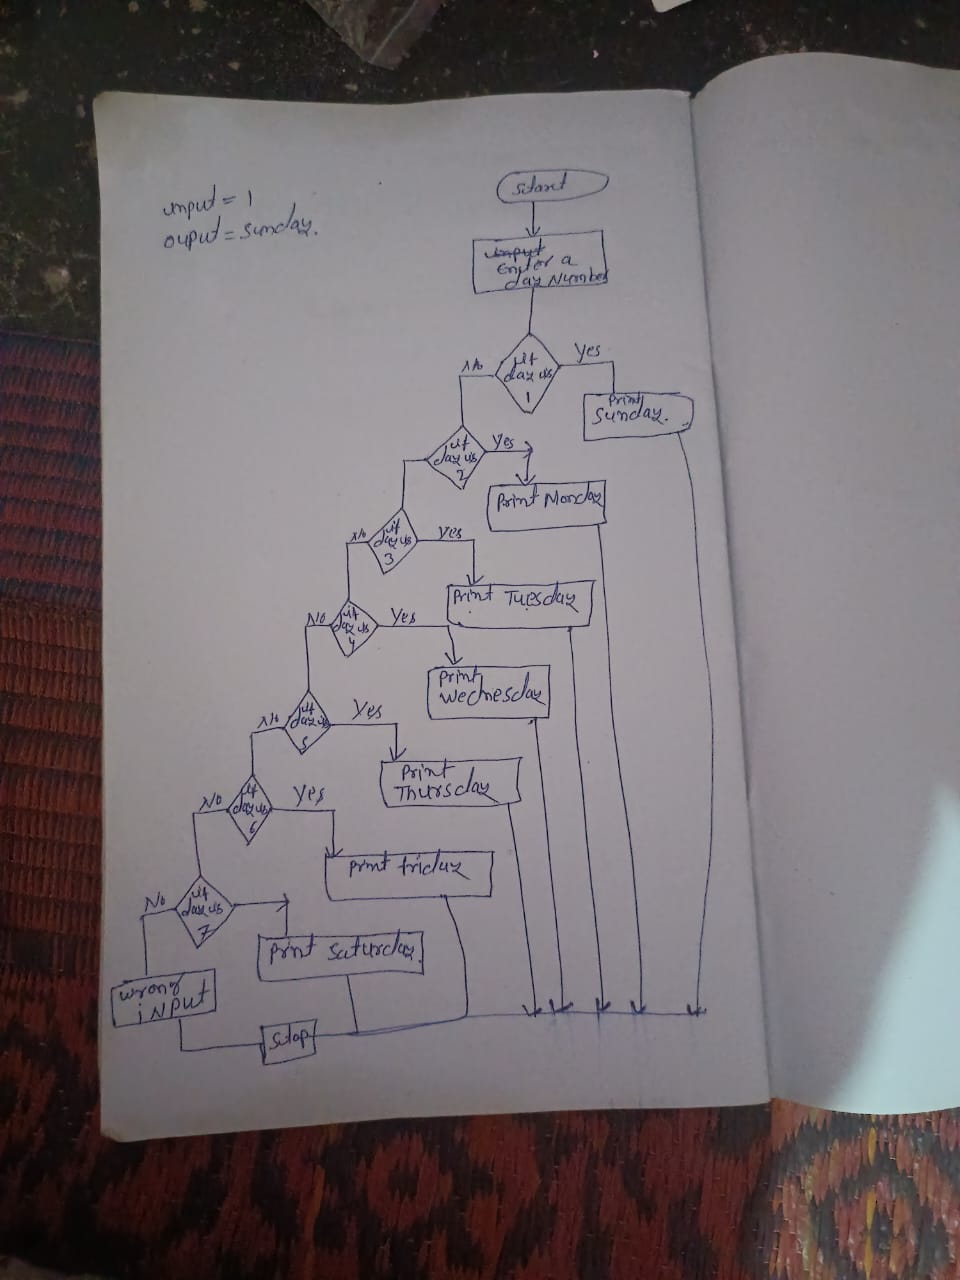 input = 1
ouput = Sunday.
Start
input
Enter a
day Number
if
day is
1
No
Yes
Print
Sunday.
if
day is
2
Yes
Print Monday
if
day is
3
No
Yes
Print Tuesday
if
day is
4
No
Yes
Print
Wednesday
if
day is
5
No
Yes
Print
Thursday
if
day is
6
No
Yes
Print friday
if
day is
7
No
Print Saturday.
wrong
iNPUT
Stop